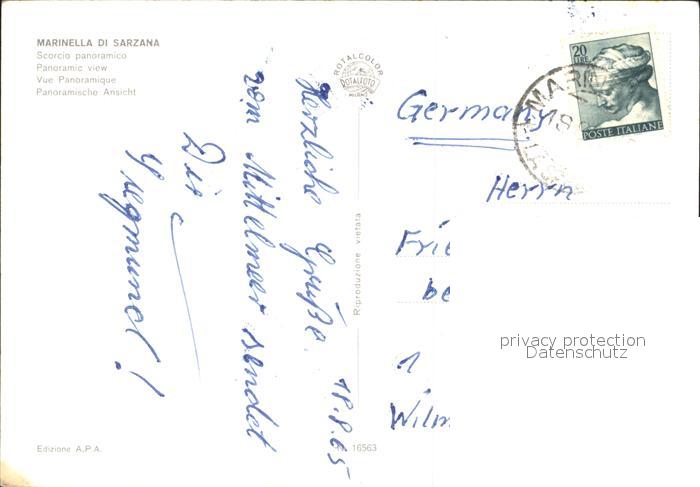 MARINELLA DI SARZANA
Scorcio panoramico
Panoramic view
Vue Panoramique
Panoramische Ansicht
ROTALCOLOR
ROTALFOTO
MILANO
20
LIRE
POSTE ITALIANE
MARI
18
Germany
Herrn
Frie
be
1
Wilm
18.8.65
Herzliche Grüße
vom Mittelmeer sendet
Dir
Riproduzione vietata
privacy protection
Datenschutz
Edizione A.P.A.
16563